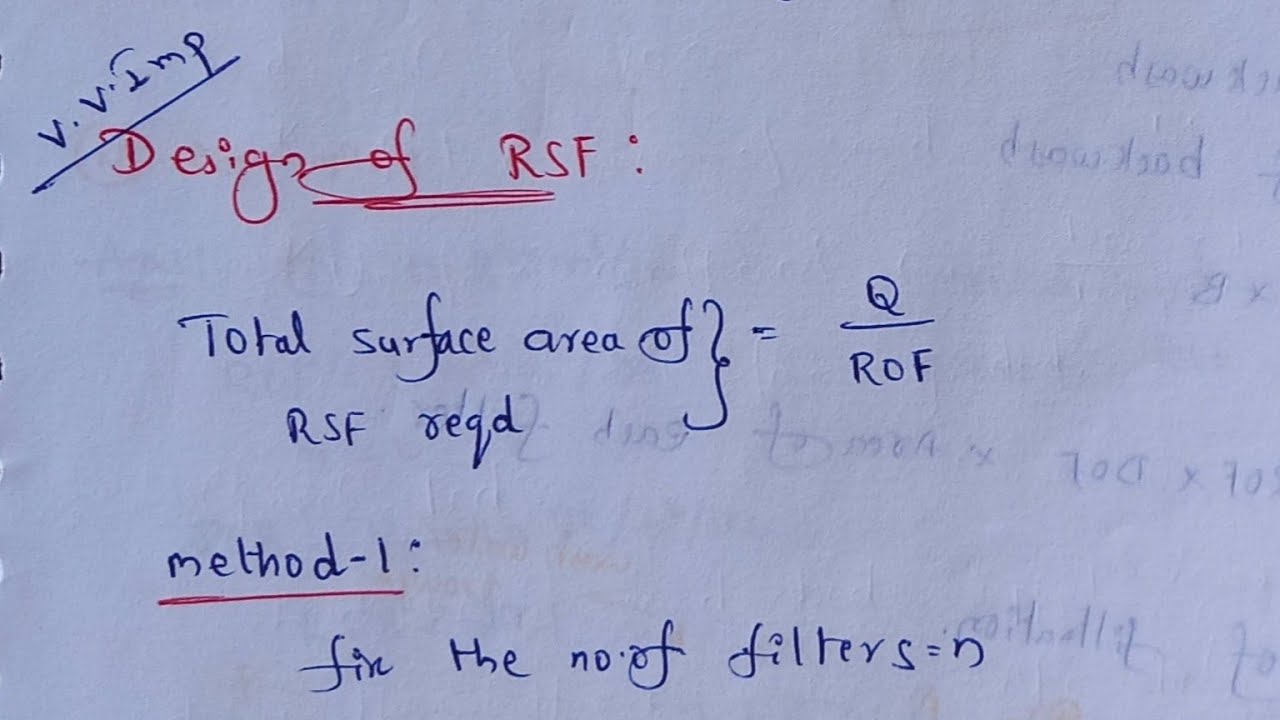 V.V.Imp
Design of RSF:
Total surface area of } = Q / ROF
RSF reqd
method-1:
fix the no. of filters = n